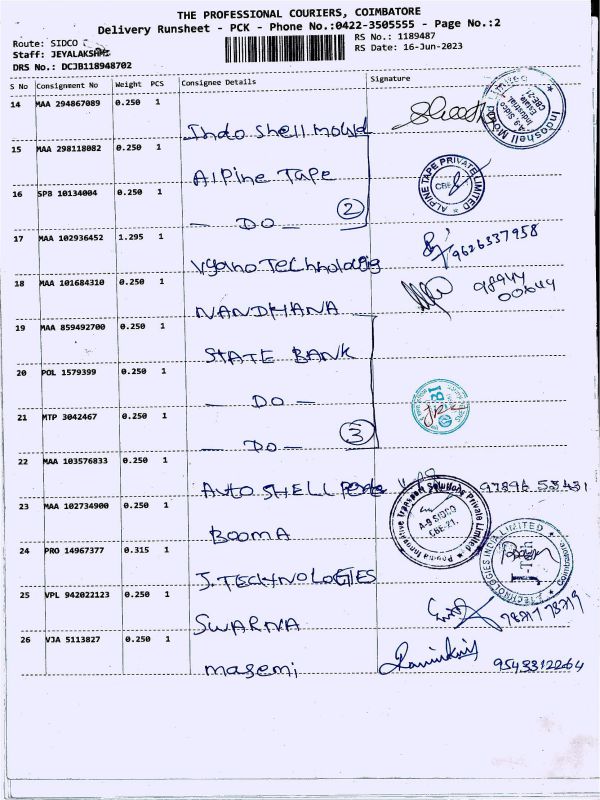 THE PROFESSIONAL COURIERS, COIMBATORE
Delivery Runsheet - PCK - Phone No.:0422-3505555 - Page No.:2
Route: SIDCO
RS No.: 1189487
Staff: JEYALAKSHMI
RS Date: 16-Jun-2023
DRS No.: DCJB118948702
S No Consignment No Weight PCS Consignee Details Signature
14 MAA 294867089 0.250 1
Indo Shell Mould
15 MAA 298118082 0.250 1
Alpine Tape
ALPINE TAPE PRIVATE LIMITED
CBE
16 SPB 10134004 0.250 1
— DO — 2
17 MAA 102936452 1.295 1
9626337958
18 MAA 101684310 0.250 1
NANDHANA
98944
00644
19 MAA 859492700 0.250 1
STATE BANK
20 POL 1579399 0.250 1
— DO —
21 MTP 3042467 0.250 1
— DO — 3
22 MAA 103576833 0.250 1
AUTO SHELL
23 MAA 102734900 0.250 1
BOOMA
A-9 SIDCO
CBE-21.
24 PRO 14967377 0.315 1
J.TECHNOLOGIES
J-TECHNOLOGIES INDIA LIMITED
Coimbatore
25 VPL 942022123 0.250 1
SWARNA
26 VJA 5113827 0.250 1
masemi